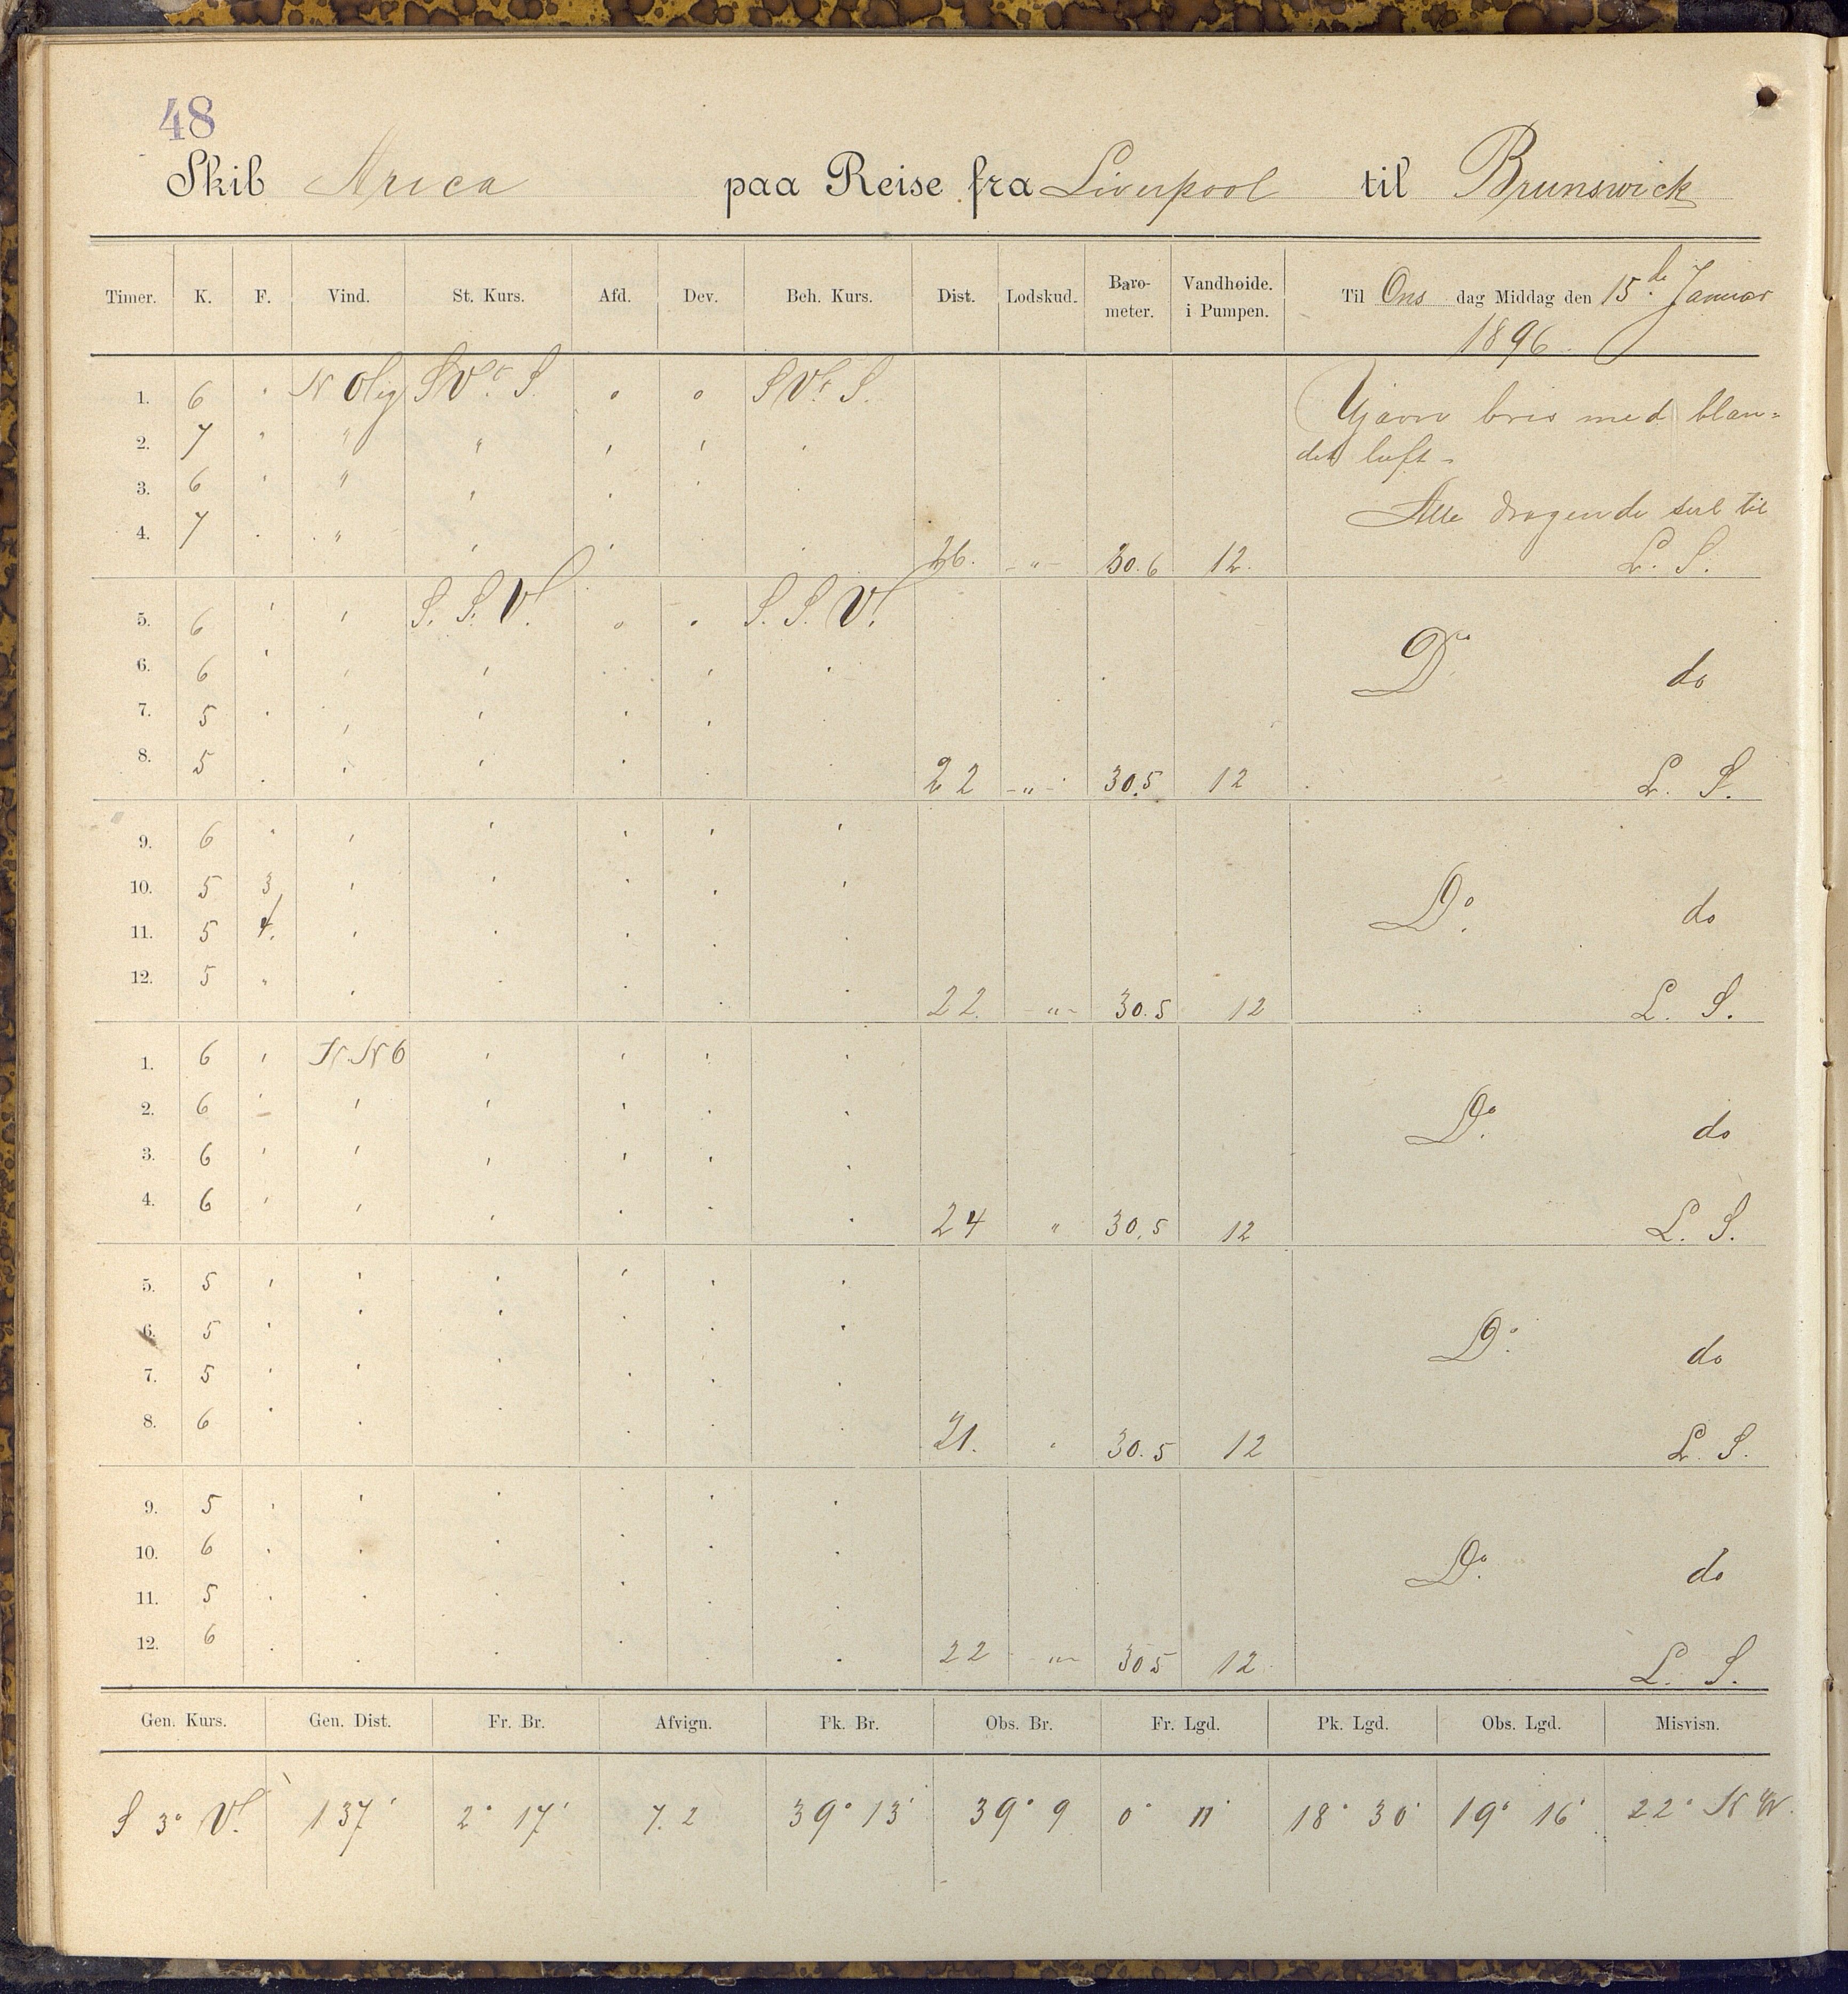 48
Skib Arica paa Reise fra Liverpool til Brunswick
Timer. K. F. Vind. St. Kurs. Afd. Dev. Beh. Kurs. Dist. Lodskud. Baro-meter. Vandhøide. i Pumpen. Til Ons dag Middag den 15de Januar 1896
1. 6 " N Olig SVt. S. o o SVt S. Ujævn bris med blan=
2. 7 " " " " " " det luft -
3. 6 " " " " " " Alle dragende seil til
4. 7 " " " " " " 26. - " - 30.6 12. L. S.
5. 6 " " S. S. V. o o S. S. V.
6. 6 " " " " " " Do do
7. 5 " " " " " "
8. 5 " " " " " " 22 - " - 30.5 12 L. S.
9. 6 " " " " " "
10. 5 3 " " " " " Do do
11. 5 4. " " " " "
12. 5 " " " " " " 22. - " - 30.5 12 L. S.
1. 6 " N. N O " " " "
2. 6 " " " " " " Do do
3. 6 " " " " " "
4. 6 " " " " " " 24 " 30.5 12 L. S.
5. 5 " " " " " "
6. 5 " " " " " " Do do
7. 5 " " " " " "
8. 6 " " " " " " 21. " 30.5 12 L. S.
9. 5 " " " " " "
10. 6 " " " " " " Do do
11. 5 " " " " " "
12. 6 " " " " " " 22 - " - 305 12 L. S.
Gen. Kurs. Gen. Dist. Fr. Br. Afvign. Pk. Br. Obs. Br. Fr. Lgd. Pk. Lgd. Obs. Lgd. Misvisn.
S 3° V. 137' 2° 17' 7.2 39° 13' 39° 9 0° 11' 18° 30' 19° 16' 22° N W.